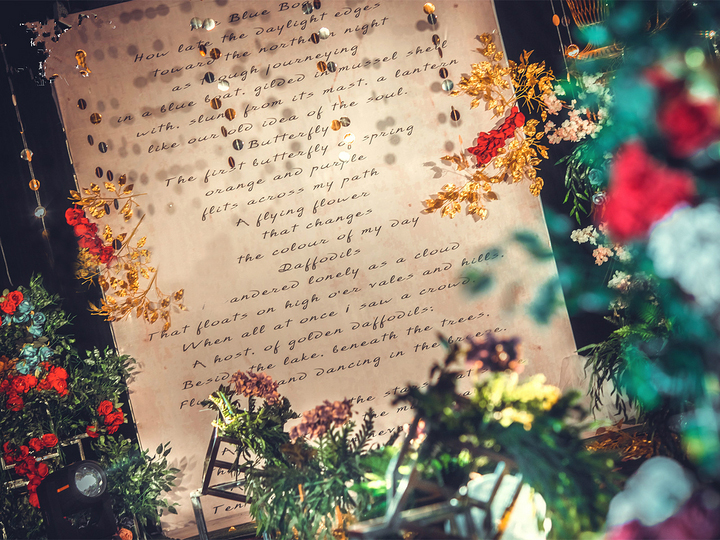 Blue Bo
How late the daylight edges
toward the northern night
as though journeying
in a blue boat, gilded mussel shell
with, slung from its mast, a lantern
like our old idea of the soul.
Butterfly
The first butterfly of spring
orange and purple
flits across my path
A flying flower
that changes
the colour of my day
Daffodils
andered lonely as a cloud
That floats on high o'er vales and hills,
When all at once i saw a crowd
A host, of golden daffodils;
Beside the lake, beneath the trees,
Fl and dancing in the breeze.
the sta
the m
Ten